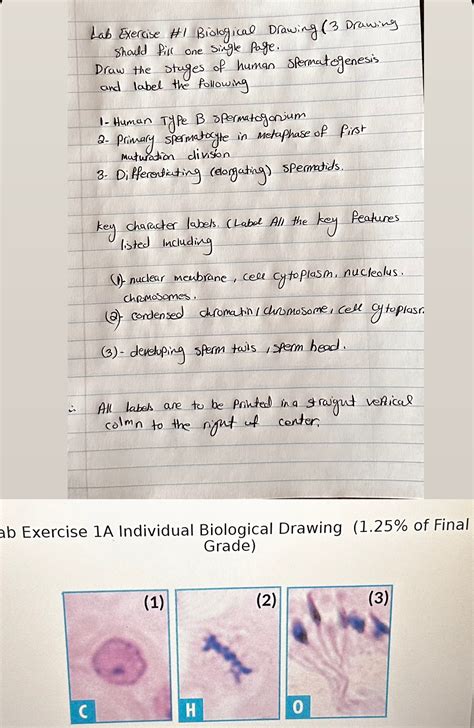 Lab Exercise #1 Biological Drawing (3 Drawing
should fill one single Page.
Draw the stages of human spermatogenesis
and label the following
1- Human Type B spermatogonium
2- Primary spermatocyte in metaphase of first
maturation division
3- Differentiating (elongating) spermatids.
key character labels. (Label All the key features
listed including
(1)- nuclear membrane, cell cytoplasm, nucleolus.
chromosomes.
(2)- condensed chromatin / chromosome, cell cytoplasm
(3)- developing sperm tails, sperm head.
∴ All labels are to be Printed in a straigut vertical
colmn to the right of center,
ab Exercise 1A Individual Biological Drawing (1.25% of Final
Grade)
(1)
(2)
(3)
C
H
O